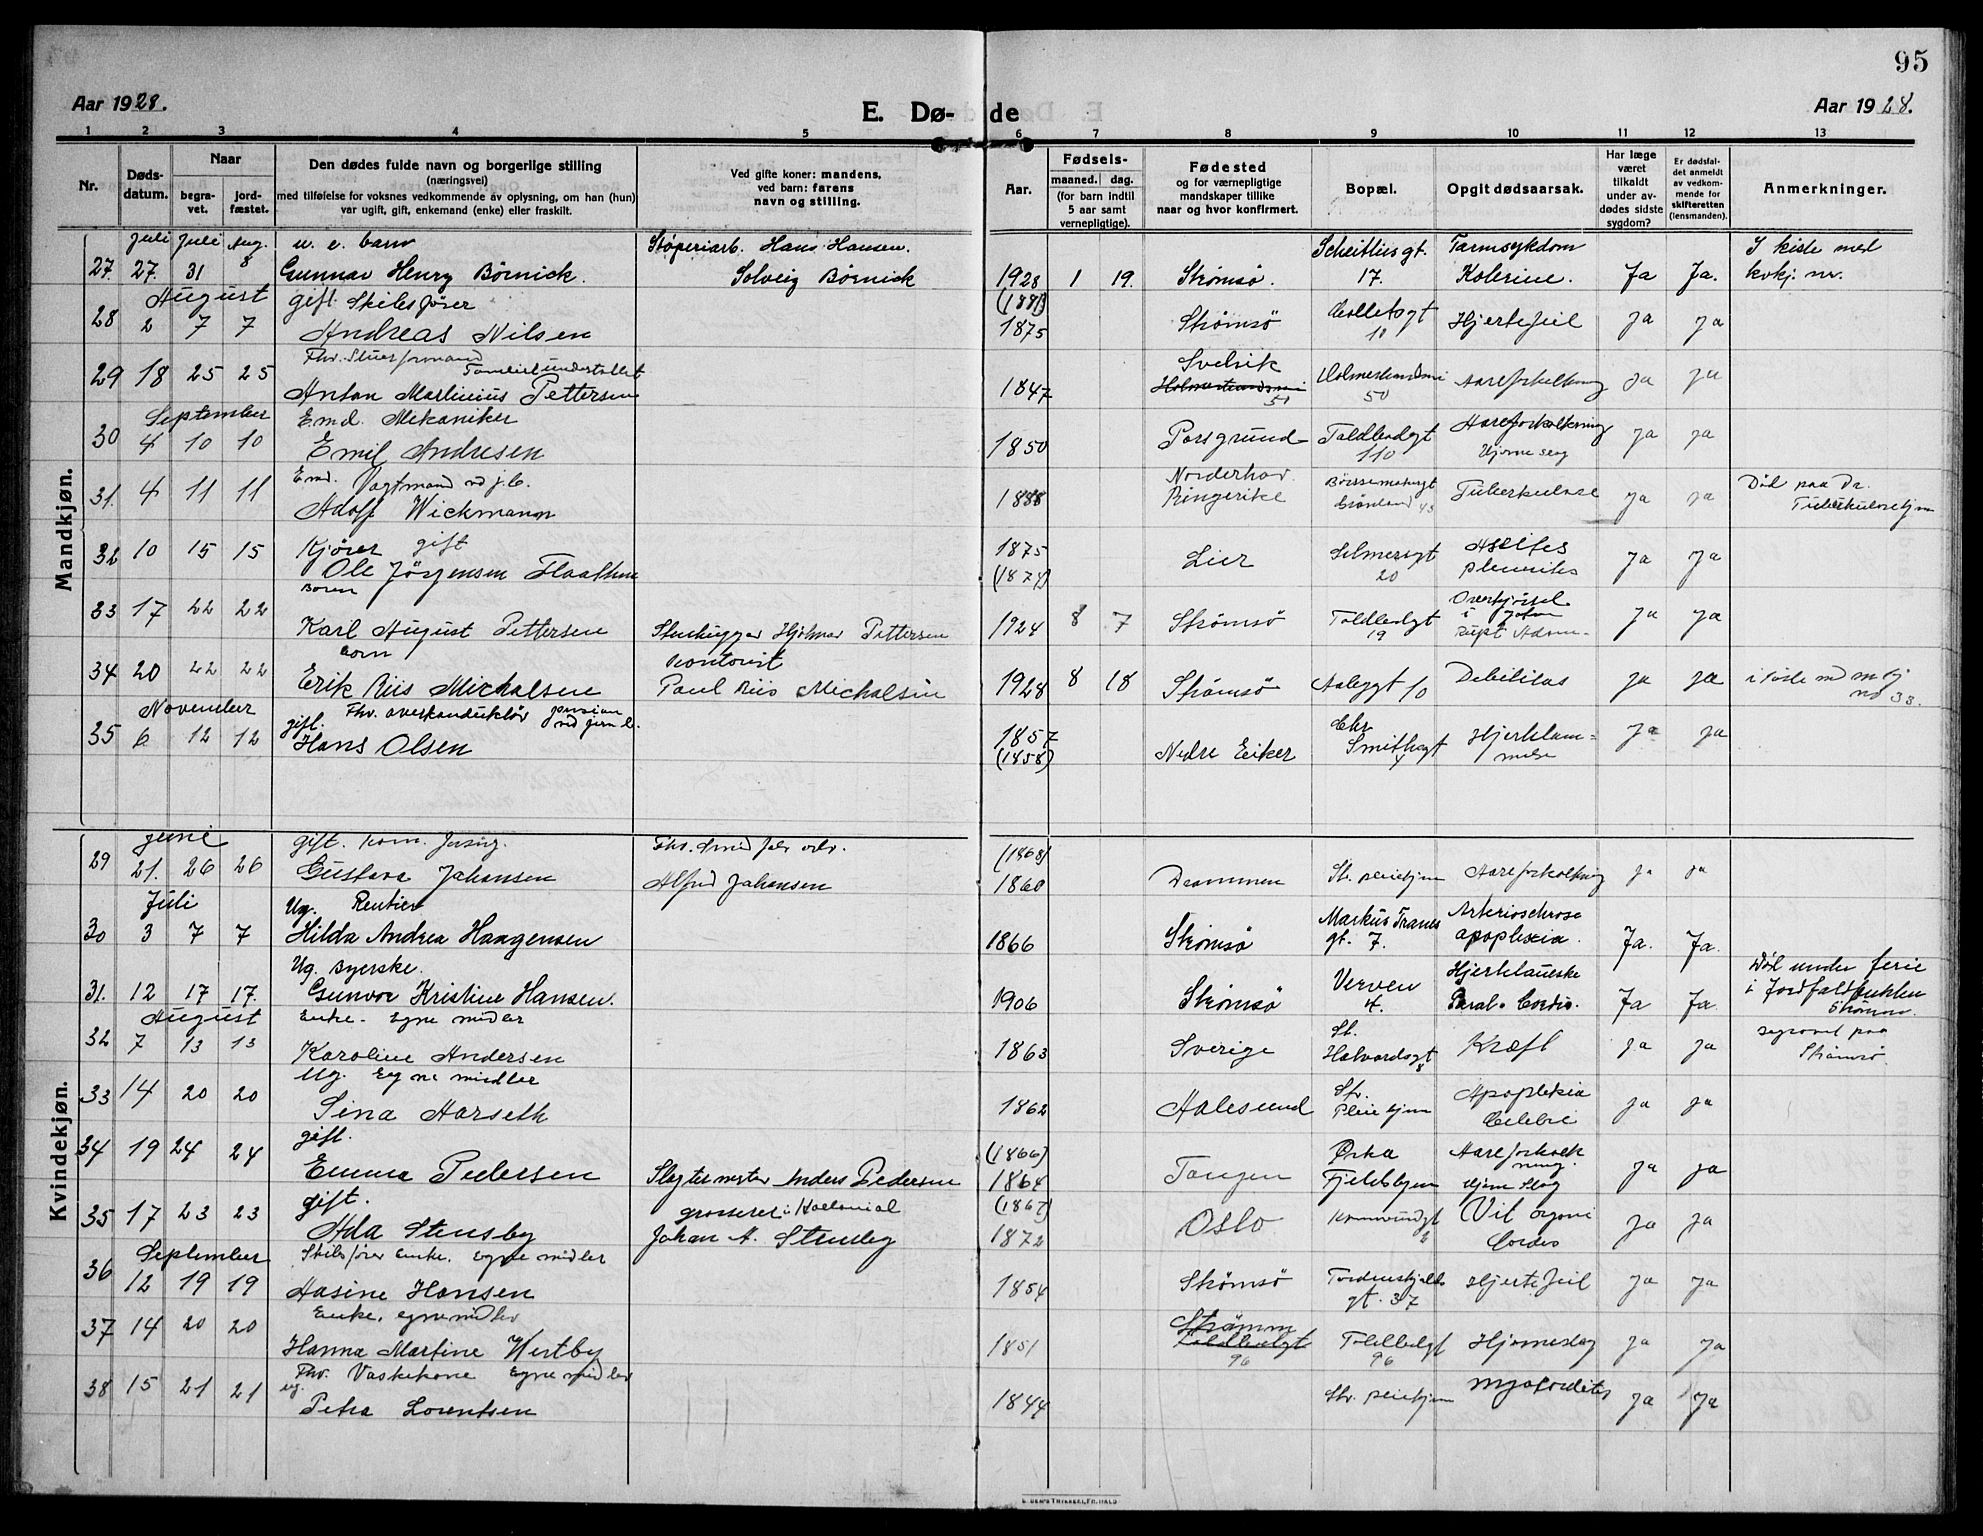 95
Aar 1928.
E. Dø-
de
Aar 1928.
1 2 3 4 5 6 7 8 9 10 11 12 13
Nr.
Døds-
datum.
Naar
begra-
vet.
jord-
fæstet.
Den dødes fulde navn og borgerlige stilling
(næringsvei)
med tilføielse for voksnes vedkommende av oplysning, om han (hun)
var ugift, gift, enkemand (enke) eller fraskilt.
Ved gifte koner: mandens,
ved barn: farens
navn og stilling.
Aar.
Fødsels-
maaned. dag.
(for barn indtil
5 aar samt
vernepligtige).
Fødested
og for værnepligtige
mandskaper tillike
naar og hvor konfirmert.
Bopæl.
Opgit dødsaarsak.
Har læge
været
tilkaldt
under av-
dødes sidste
sygdom?
Er dødsfal-
det anmeldt
av vedkom-
mende for
skifteretten
(lensmanden).
Anmerkninger.
Mandkjøn.
Juli Juli Aug. u. e. barn Støperiarb. Hans Hansen. Scheitliusgt. Tarmsykdom I kiste med
27. 27. 31 8 Gunnar Henry Børnick. Solveig Børnick 1928 1 19. Strømsø. 17. Kolerine. Ja Ja. kvkj. nr.
August gift. Skibsfører (1881)
28 2 7 7 Andreas Nilsen 1875 Strømsø 10 Hjertefeil Ja Ja
Fhv. Stuerformand Familieunderstøttet Svelvik
29 18 25 25 Anton Martinius Pettersen 1847 Holmestrandsvei 50 Holmestrandsvei 50 Aareforkalkning Ja Ja
September Emd. Mekaniker
30 4 10 10 Emil Andresen 1850 Porsgrund Toldbodgt 110 Aareforkalkning Hjerneslag Ja Ja
Emd. Vagtmand vd j.b. Norderhov Død paa Dr.
31. 4 11 11 Adolf Wickmann 1888 Ringerike Grønland 43 Tuberkulose Ja Ja Tuberkulosehjm
Kjører gift 1875
32 10 15 15 Ole Jørgensen Flaathen (1874) Lier Selmersgt 20 Ascites pleurites Ja Ja
Barn Overkjørsel
33 17 22 22 Karl August Pettersen Stenhugger Hjalmar Pettersen 1924 8 7 Strømsø Toldbodgt 19 Ja Ja
barn Kontorist
34 20 22 22 Erik Riis Michalsen Paul Riis Michalsen 1928 8 18 Strømsø 10 Debilitas Ja Ja i kiste md mkj no 33.
November gift. Fhv. overkonduktør pension ved jern b.
35 6 12 12 Hans Olsen 1857 (1858) Nedre Eiker Chr Smithsgt 4 Hjertelam-
melse Ja Ja
Kvindekjøn.
Juni gift. Fhv. Smed (1868)
29 21. 26 26 Gustava Johansen Alfred Johansen 1860 Drammen St. pleiehjem Aareforkalkning Ja Ja
Juli Ug. Rentier Markus Tranes Arteriosclrose
30 3 7 7 Hilda Andrea Haagensen 1866 Strømsø gt. 7. apoplexia. Ja. Ja.
Ug. syerske. Verven Hjertelameske Død under ferie
31. 12 17 17. Gunvor Kristine Hansen. 1906 Strømsø 4. Paral. Cordis. Ja Ja. i Jordfaldbukten
August Enke. Egne midler St. Strømm.
32 7 13 13 Karoline Andersen 1863 Sverige Halvardsgt 8 Kræft Ja Ja begravet paa Strømsø
Ug. Egne midler Str. Apoplexia
33 14 20 20 Sina Aarseth 1862 Aalesund Pleiehjem Celebri Ja Ja
gift. (1866) Ørka Aareforkalk
34 19 24 24 Emma Pedersen Slagtermester Anders Pedersen 1864 Tangen Fjeldsbyen ning. Hjerneslag Ja Ja
gift. grosserer i Kolonial (1867)
35 17 23 23 Ada Stensby Johan A. Stensby 1872 Oslo Kornvandgt 2 Vit. orgoni Cordis Ja Ja
September Skibsfører Enke. Egne midler
36 12 19 19 Hasine Hansen 1854 Strømsø Tordenskjolds gt. 37 Hjertefeil Ja Ja
Enke, egne midler Strømm
37 14 20 20 Hanna Martine Westby 1851 Toldbodgt 96 Toldbodgt 96 Hjerneslag Ja Ja
ug. Fhv. Vaskekone Egne midler
38 15 21 21 Petra Lorentsen 1844 Str. pleiehjem Myocorditis Ja Ja